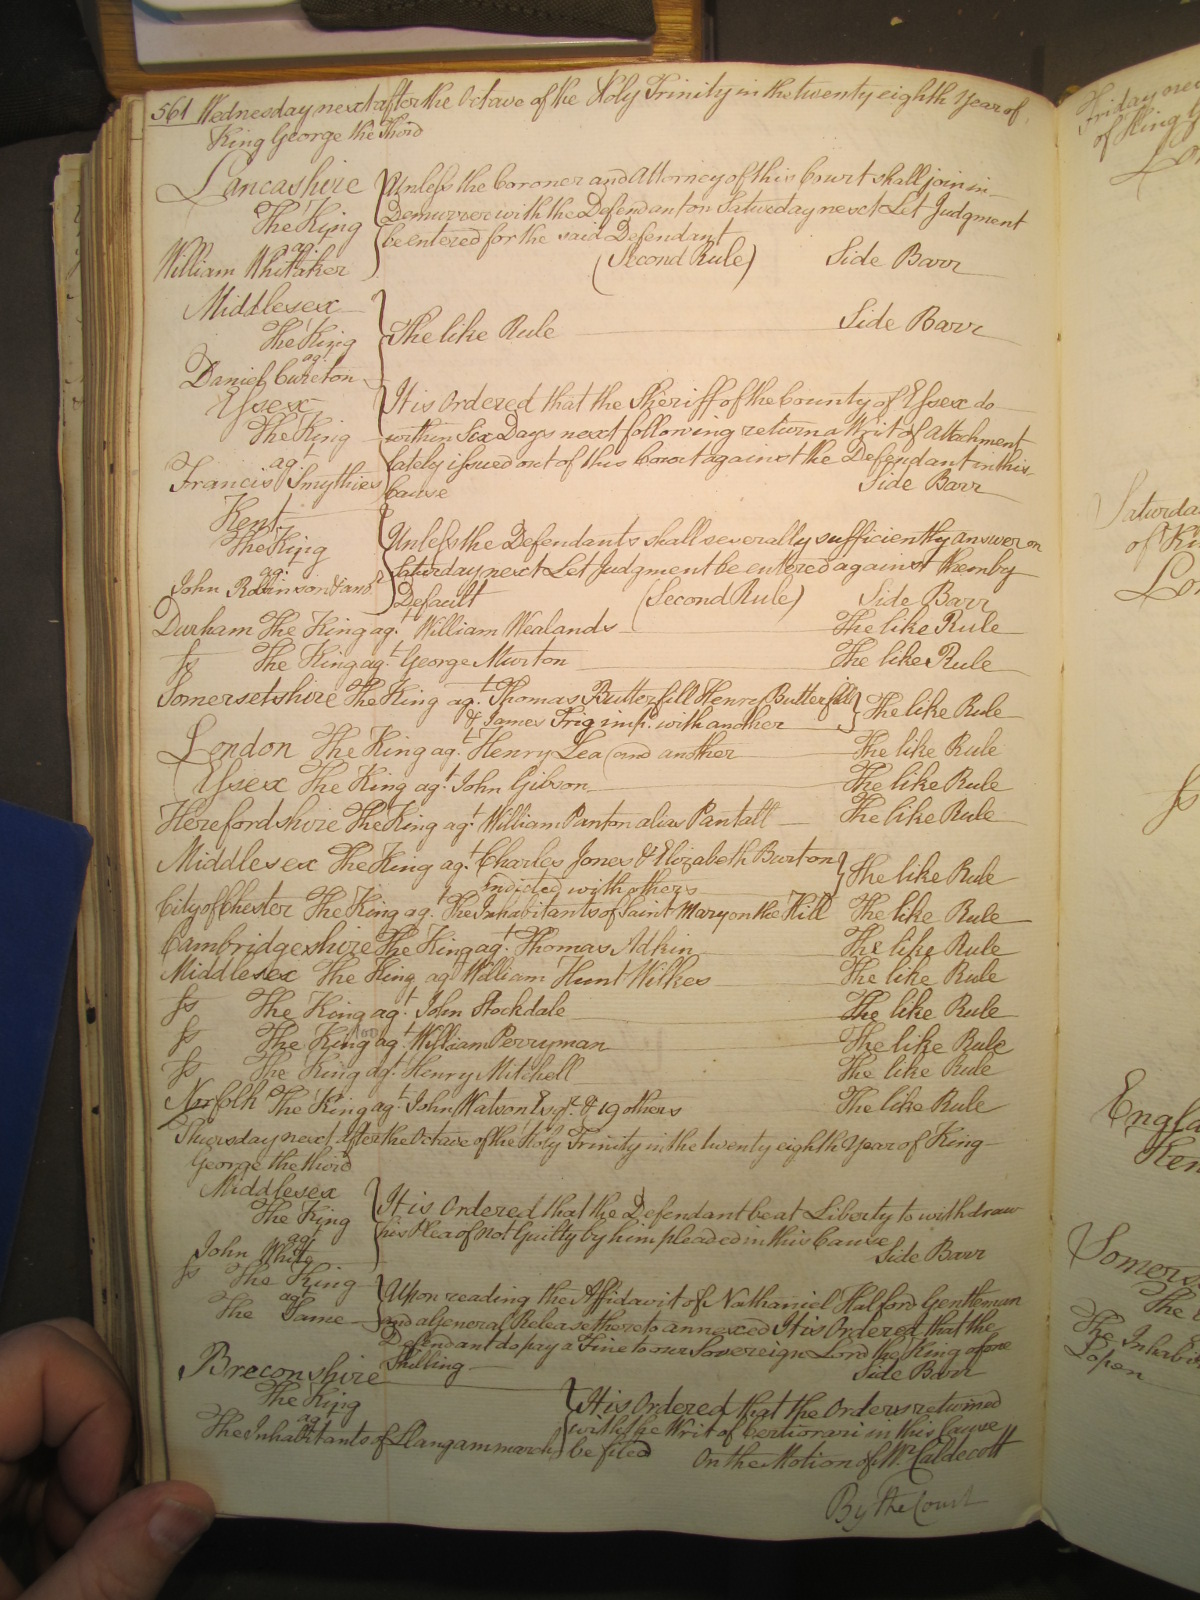 561 Wednesday next after the Octave of the Holy Trinity in the twenty eighth Year of
King George the Third
Lancashire
The King
agt
William Whitaker
Unless the Coroner and Attorney of this Court shall join in
Demurrer with the Defendant on Saturday next Let Judgment
be entered for the said Defendant
(Second Rule) Side Barr
Middlesex
The King
agt
Daniel Cureton
The like Rule Side Barr
Essex
The King
agt
Francis Smythies
It is Ordered that the Sheriff of the County of Essex do
within Six Days next following return a Writ of Attachment
lately issued out of this Court against the Defendant in this
Cause Side Barr
Kent
The King
agt
John Robinson & anr
Unless the Defendants shall severally sufficiently answer on
Saturday next Let Judgment be entered against them by
Default (Second Rule) Side Barr
Durham The King agt William Wealands The like Rule
ss The King agt George Murton The like Rule
Somersetshire The King agt Thomas Butterfill Henry Butterfill
& James Trig imp. with another The like Rule
London The King agt Henry Lea and another The like Rule
Essex The King agt John Gibson The like Rule
Herefordshire The King agt William Panton alias Pantall The like Rule
Middlesex The King agt Charles Jones & Elizabeth Burton
indicted with others The like Rule
City of Chester The King agt The Inhabitants of Saint Mary on the Hill The like Rule
Cambridgeshire The King agt Thomas Adkin The like Rule
Middlesex The King agt William Hunt Wilkes The like Rule
ss The King agt John Stockdale The like Rule
ss The King agt William Perryman The like Rule
ss The King agt Henry Mitchell The like Rule
Norfolk The King agt John Watson Esqr. & 19 others The like Rule
Thursday next after the Octave of the Holy Trinity in the twenty eighth Year of King
George the third
Middlesex
The King
agt
John White
It is Ordered that the Defendant be at Liberty to withdraw
his Plea of not Guilty by him pleaded in this Cause
Side Barr
ss The King
agt
The Same
Upon reading the Affidavit of Nathaniel Halford Gentleman
and a General Release thereto annexed It is Ordered that the
Defendant do pay a Fine to our Sovereign Lord the King of one
Shilling Side Barr
Breconshire
The King
agt
The Inhabitants of Llangammarch
It is Ordered that the Orders returned
with the Writ of Certiorari in this Cause
be filed On the Motion of Mr. Caldecott
By the Court
Friday
of King
Saturda
of Ki
Lo
ss
Engla
Ken
Somers
The
The Inhabi
Lopen